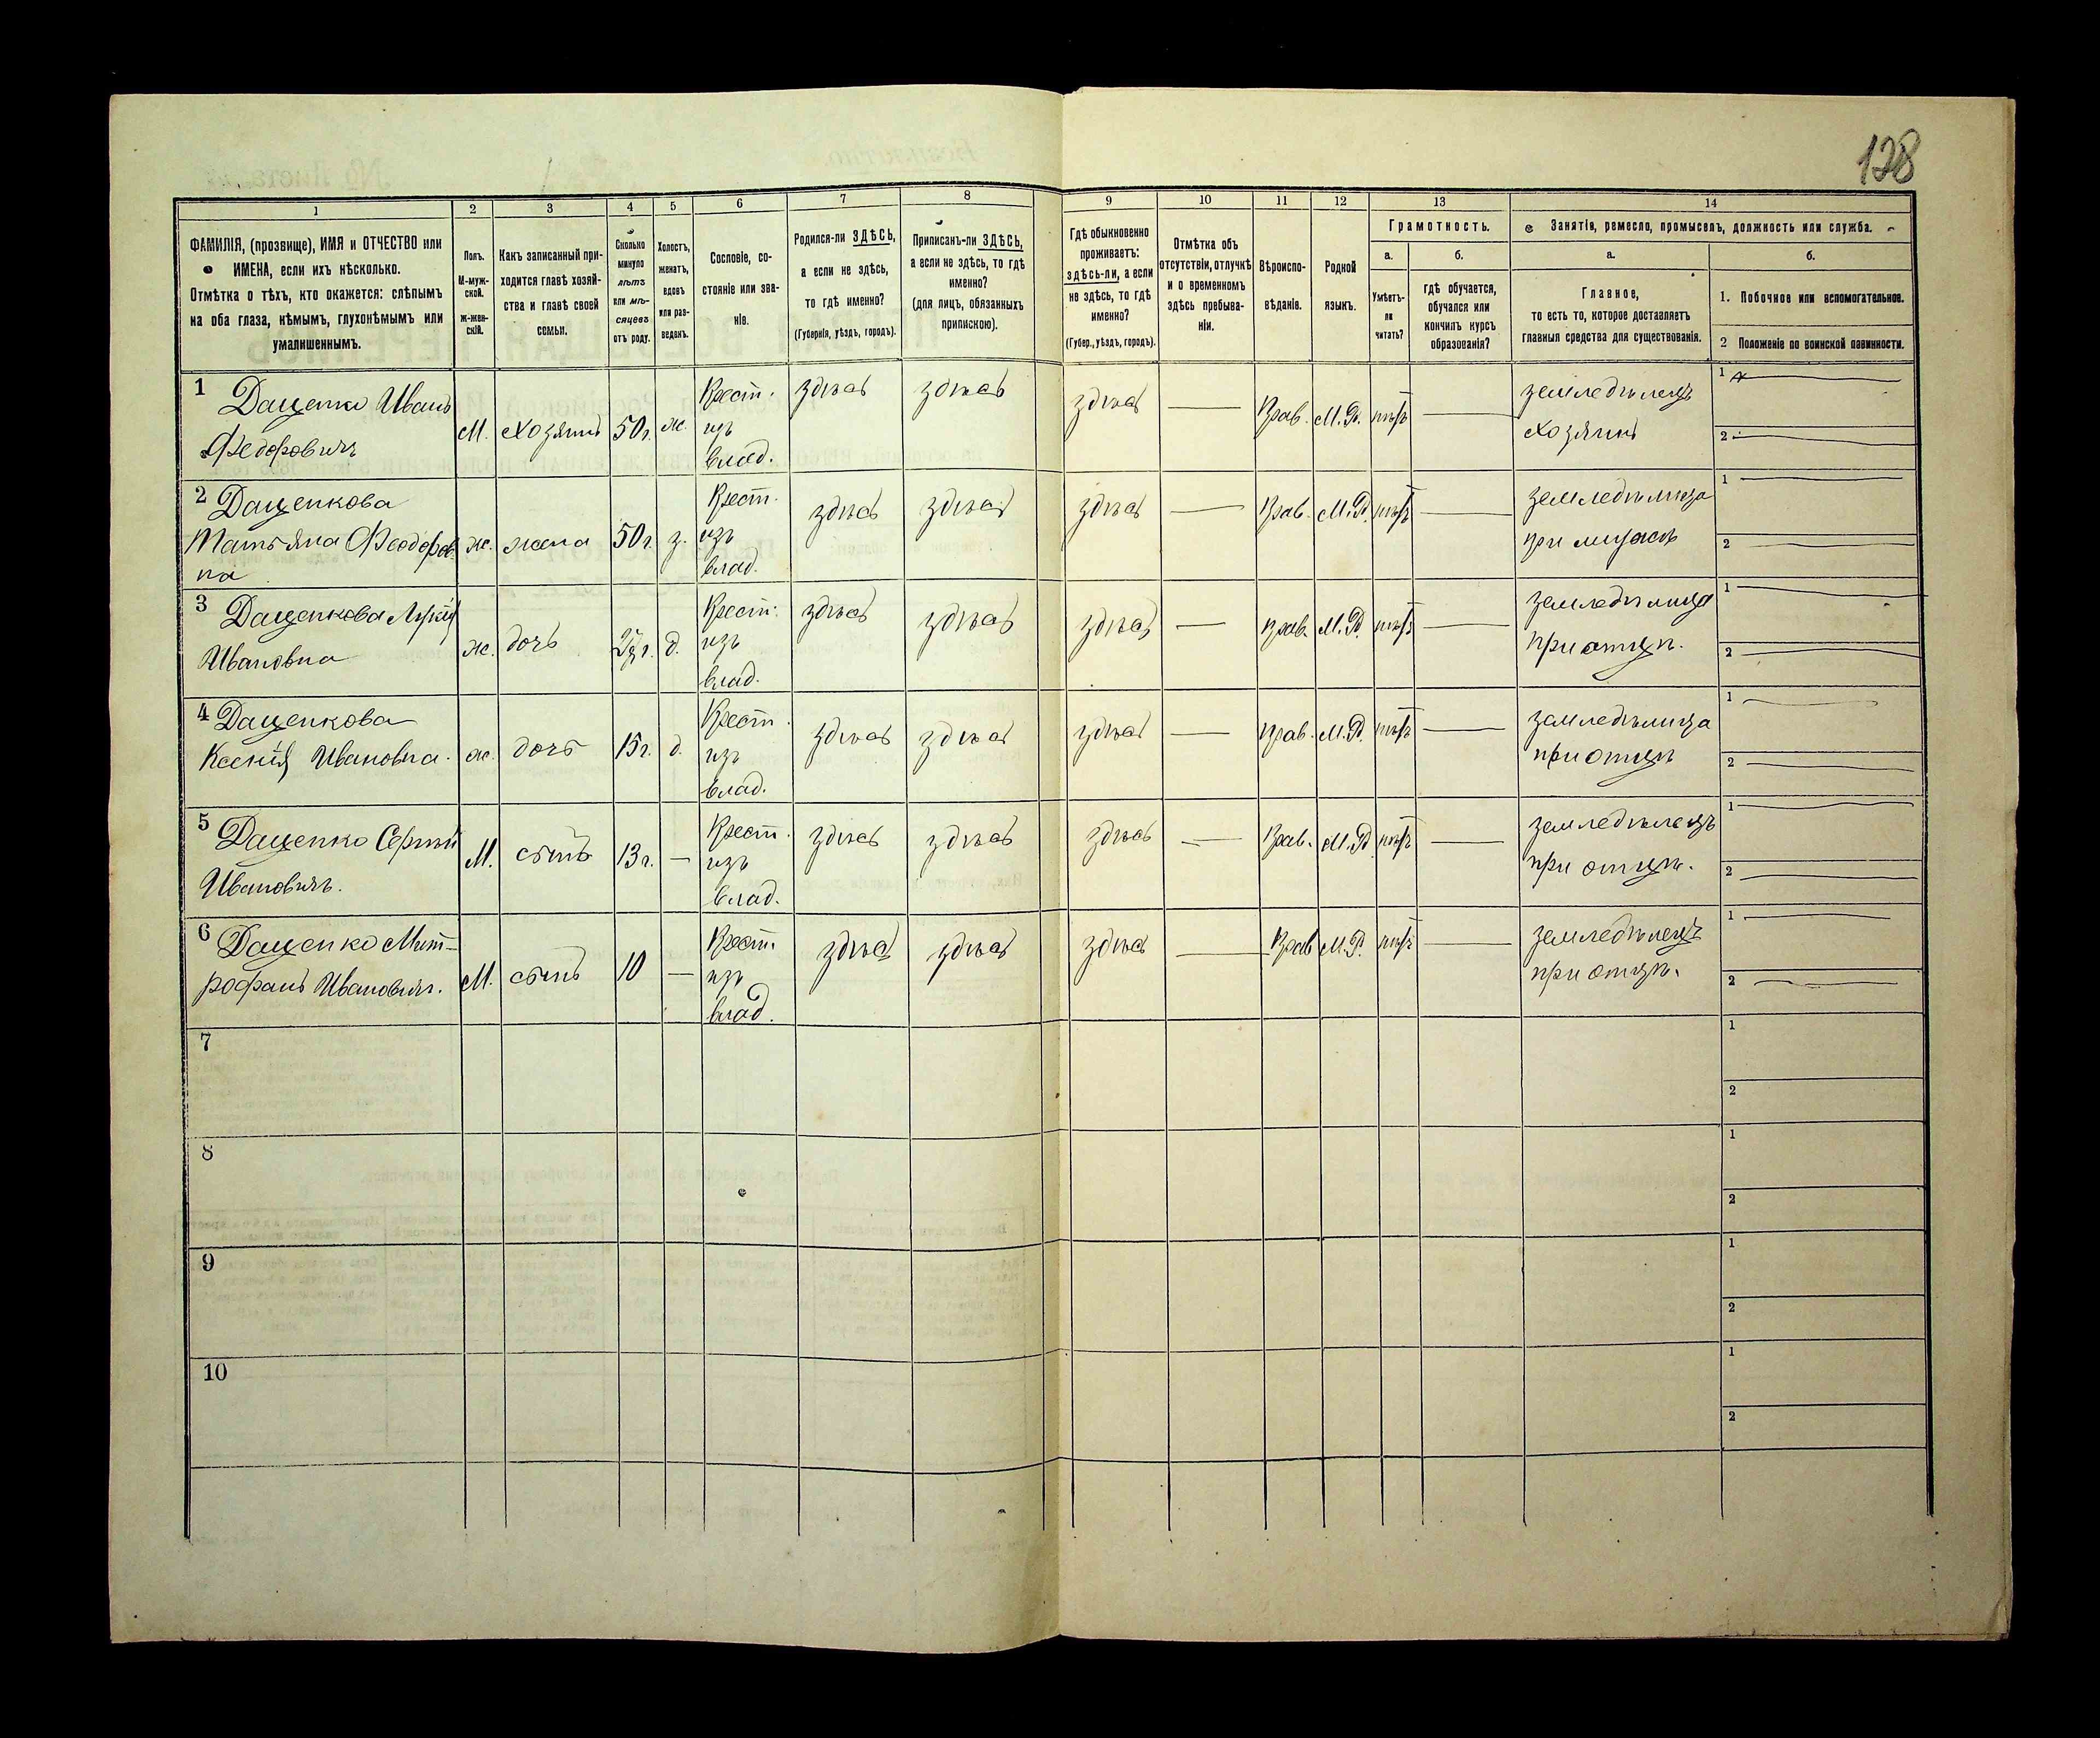 128
1 2 3 4 5 6 7 8 9 10 11 12 13 14
ФАМИЛІЯ, (прозвище), ИМЯ и ОТЧЕСТВО или
ИМЕНА, если ихъ нѣсколько.
Отмѣтка о тѣхъ, кто окажется: слѣпымъ
на оба глаза, нѣмымъ, глухонѣмымъ или
умалишеннымъ.
Полъ.
М-муж-
ской.
Ж-жен-
скій.
Какъ записанный при-
ходится главѣ хозяй-
ства и главѣ своей
семьи.
Сколько
минуло
лѣтъ
или мѣ-
сяцевъ
отъ роду.
Холостъ,
женатъ,
вдовъ
или раз-
веденъ.
Сословіе, со-
стояніе или зва-
ніе.
Родился-ли ЗДѢСЬ,
а если не здѣсь,
то гдѣ именно?
(Губернія, уѣздъ, городъ).
Приписанъ-ли ЗДѢСЬ,
а если не здѣсь, то гдѣ
именно?
(для лицъ, обязанныхъ
припискою).
Гдѣ обыкновенно
проживаетъ:
здѣсь-ли, а если
не здѣсь, то гдѣ
именно?
(Губер., уѣздъ, городъ).
Отмѣтка объ
отсутствіи, отлучкѣ
и о временномъ
здѣсь пребыва-
ніи.
Вѣроиспо-
вѣданіе.
Родной
языкъ.
Грамотность.
а.
Умѣетъ-
ли
читать?
б.
гдѣ обучается,
обучался или
кончилъ курсъ
образованія?
Занятія, ремесло, промыселъ, должность или служба.
а.
Главное,
то есть то, которое доставляетъ
главныя средства для существованія.
б.
1. Побочное или вспомогательное.
2 Положеніе по воинской повинности.
1 Даценко Иванъ
Федоровичъ
М. Хозяинъ 50 г. ж.
Крест.
изъ
влад.
здѣсь здѣсь здѣсь — Прав. М. Р. нѣтъ —
земледѣлецъ
Хозяинъ
1
2
2 Даценкова
Татьяна Феодоров-
на
ж. жена 50 г. з.
Крест.
изъ
влад.
здѣсь здѣсь здѣсь — Прав. М. Р. нѣтъ —
земледѣлица
при мужѣ
1
2
3 Даценкова Лукія
Ивановна
ж. дочь г. д.
Крест.
изъ
влад.
здѣсь здѣсь здѣсь — прав. М. Р. нѣтъ —
земледѣлица
при отцѣ.
1
2
4 Даценкова
Ксенія Ивановна.
ж. дочь 15 г. д.
Крест.
изъ
влад.
здѣсь здѣсь здѣсь — прав. М. Р. нѣтъ —
земледѣлица
при отцѣ
1
2
5 Даценко Сергѣй
Ивановичъ.
М. сынъ 13 г. —
Крест.
изъ
влад.
здѣсь здѣсь здѣсь — Прав. М. Р. нѣтъ —
земледѣлецъ
при отцѣ.
1
2
6 Даценко Мит-
рофанъ Ивановичъ.
М. сынъ 10 —
Крест.
изъ
влад.
здѣсь здѣсь здѣсь — Прав М. Р. нѣтъ —
земледѣлецъ
при отцѣ.
1
2
7
1
2
8
1
2
9
1
2
10
1
2